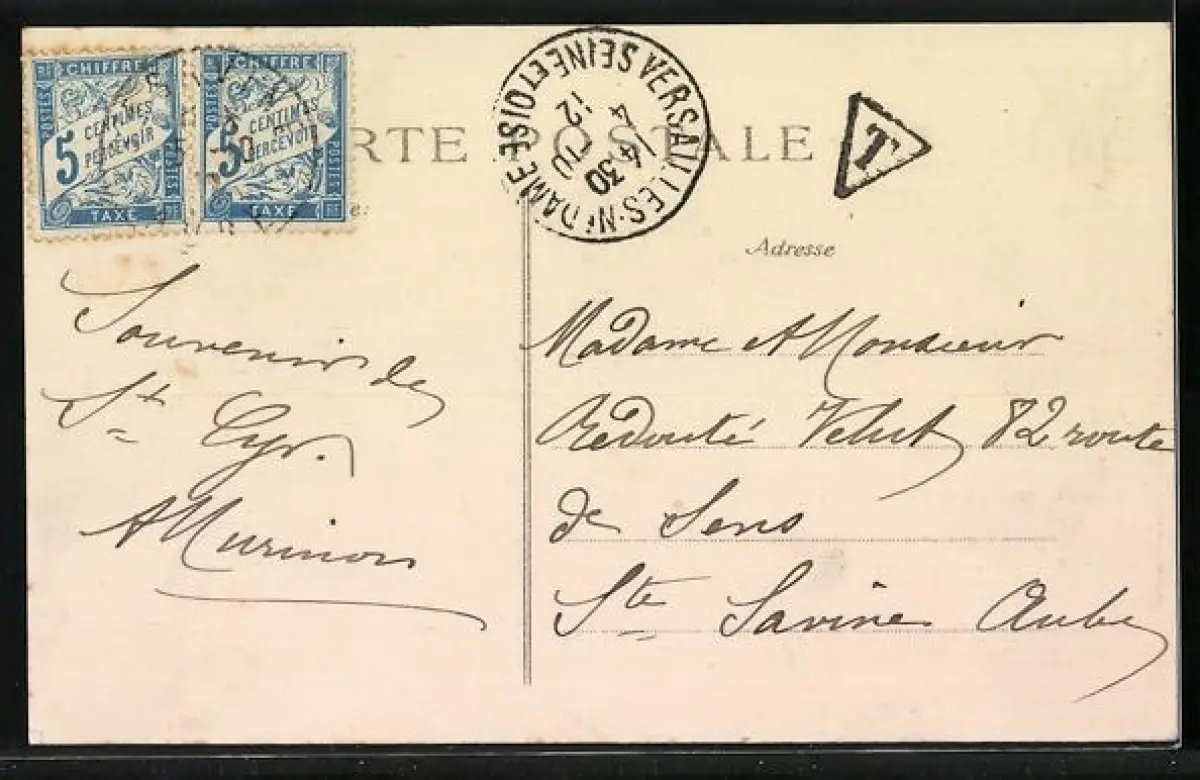 CHIFFRE CHIFFRE
POSTES 5 CENTIMES À PERCEVOIR POSTES
TAXE
POSTES 5 CENTIMES À PERCEVOIR POSTES
TAXE
RTE POSTALE
VERSAILLES-Nᵗ DAME SEINE ET OISE
4 30
4
12
T
Adresse
Souvenir de
St Cyr.
Madame & Monsieur
Redouté Velut 82 route
de Sens
Ste Savine Aube